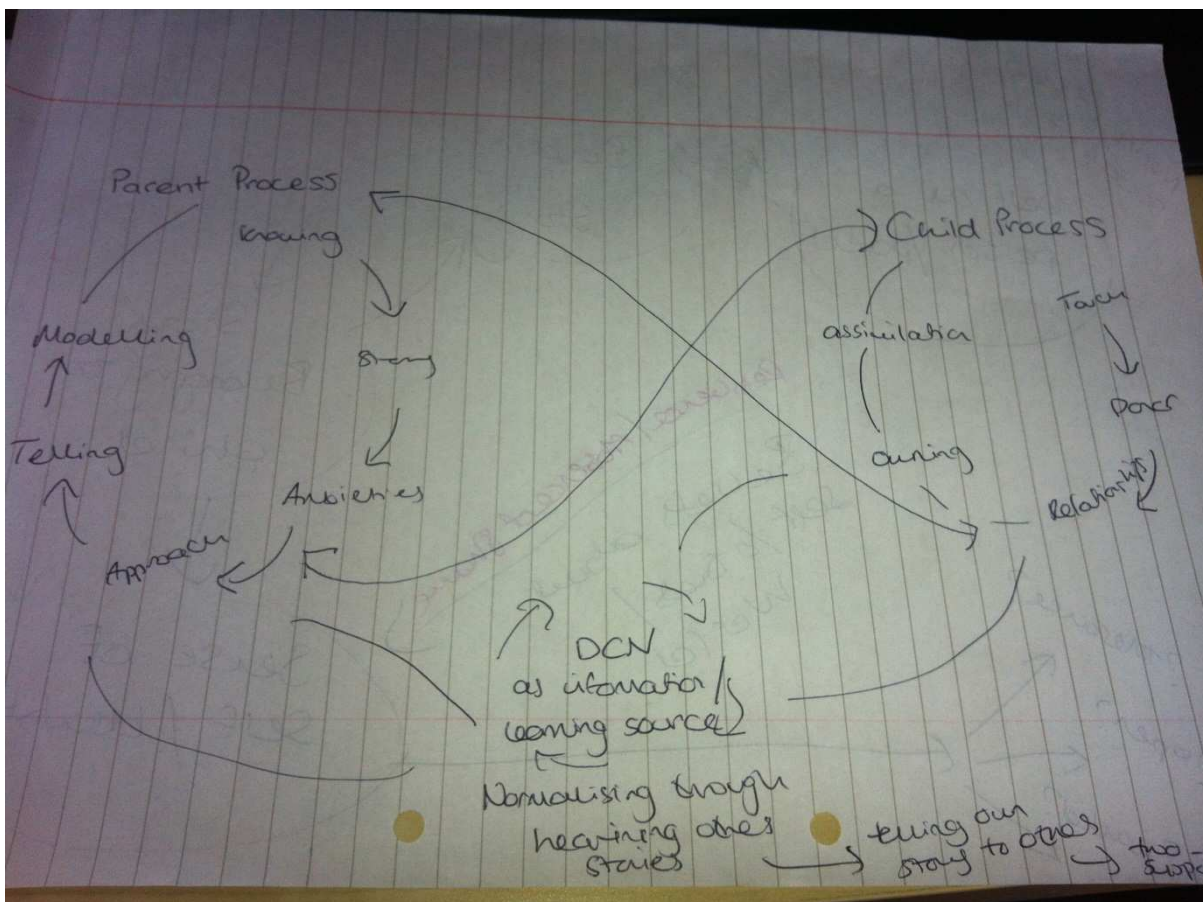 Parent Process
knowing
Story
Anxieties
Approach
Telling
Modelling
Child Process
assimilation
owning
Donor
Relationship
DCN
as information/
learning source
Normalising through
hearining others
stories
telling our
story to others
two-